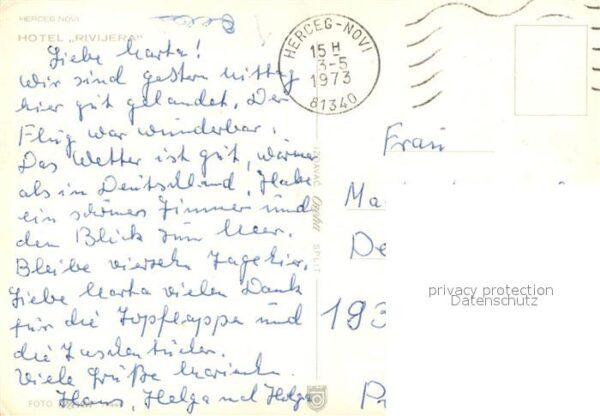 HERCEG NOVI
HOTEL „RIVIJERA"
Liebe Marta!
Wir sind gestern Mittag
hier gut gelandet. Der
Flug war wunderbar.
Das Wetter ist gut, wärmer
als in Deutschland. Habe
ein schönes Zimmer und
den Blick zum Meer.
Bleibe vierzehn Tage hier.
Liebe Marta vielen Dank
für die Topflappen und
die Taschentücher.
Viele Grüße
Hans, Helga und Helga
FOTO
HERCEG-NOVI
15 H
3-5
1973
81340
SPLIT
Frau
Ma
De
193
privacy protection
Datenschutz